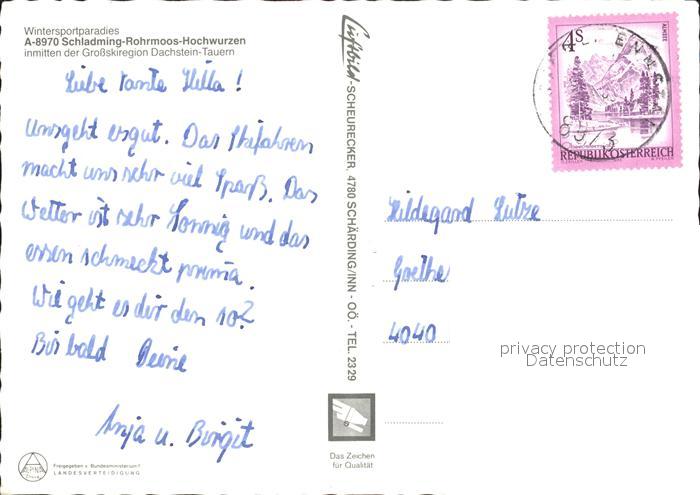 Wintersportparadies
A-8970 Schladming-Rohrmoos-Hochwurzen
inmitten der Großskiregion Dachstein-Tauern
Liebe tante Hilla !
Unsgeht esgut. Das Skifahren
macht uns sehr viel Spaß. Das
Wetter ist sehr Sonnig und das
essen schmeckt prima.
Wie geht es dir den so?
Bis bald Deine
Anja u. Birgit
ALPINA
Freigegeben v. Bundesministerium f.
LANDESVERTEIDIGUNG
Luftbild-SCHEURECKER, 4780 SCHÄRDING/INN - OÖ. - TEL. 2329
Das Zeichen
für Qualität
4S
ALMSEE
REPUBLIK ÖSTERREICH
ENNSTAL
8973
Hildegard Lutze
Goethe
4040
privacy protection
Datenschutz